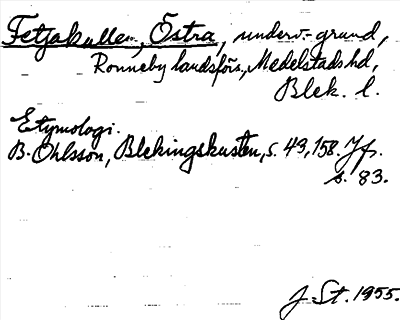 Fetjakullen, Östra, underv.-grund,
Ronneby landsförs., Medelstads hd,
Blek. l.
Etymologi.
B. Ohlsson, Blekingskusten, s. 43, 158. Jfr.
s. 83.
J. St. 1955.